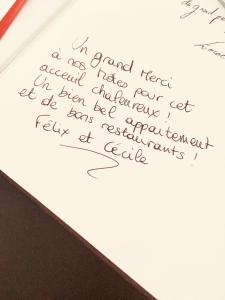 Un grand Merci
à nos hôtes pour cet
acceuil chaleureux !
Un bien bel appartement
et de bons restaurants !
Félix et Cécile